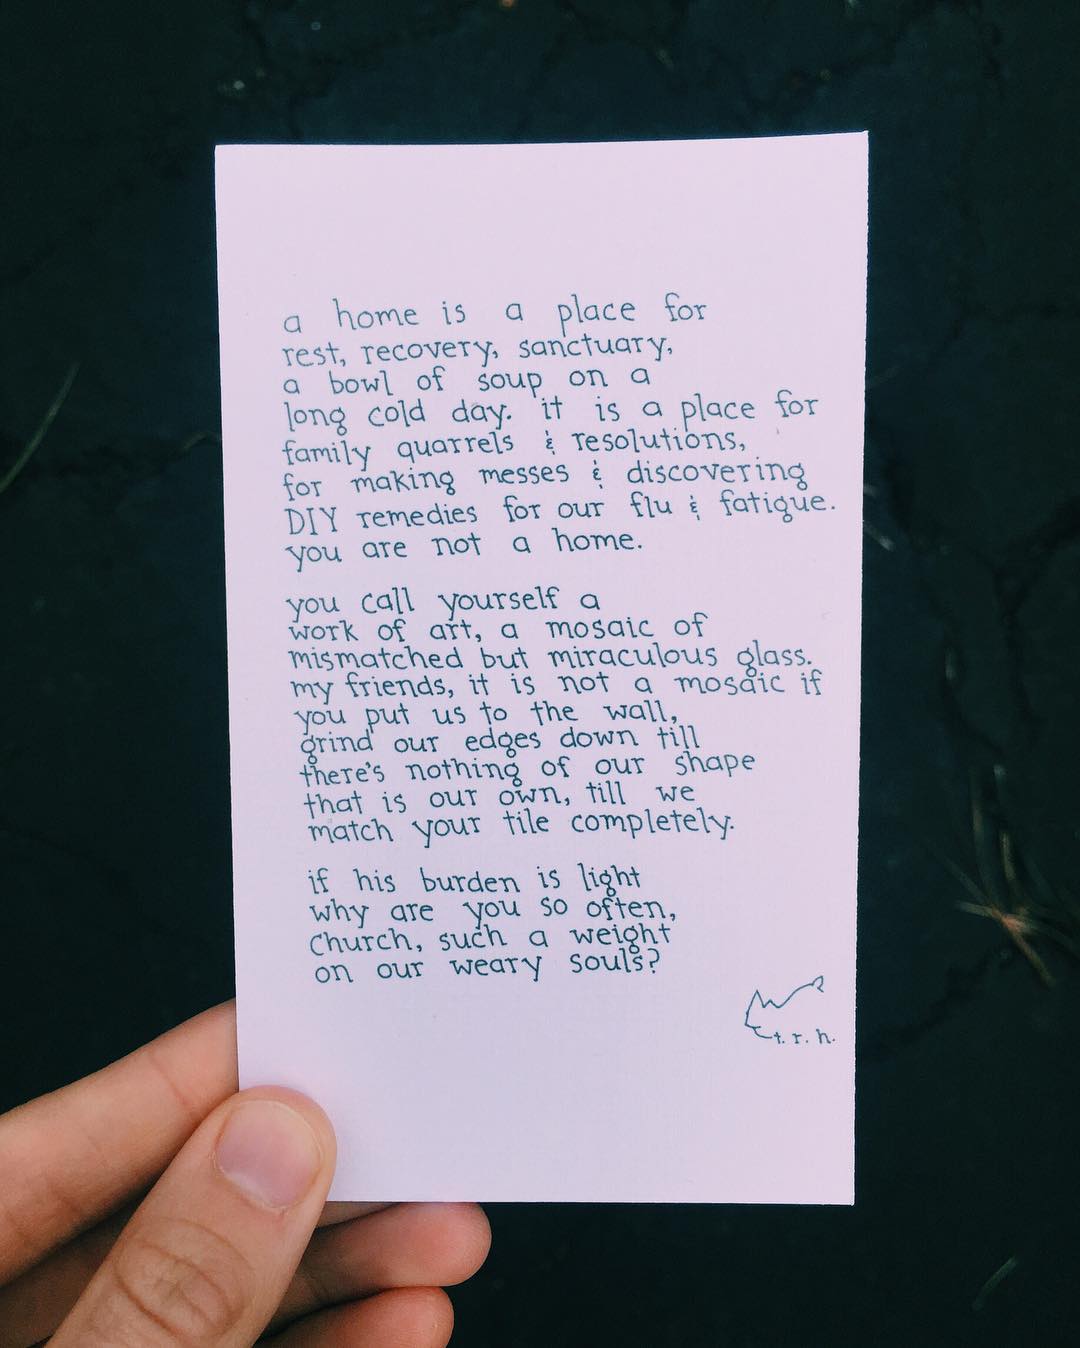 a home is a place for
rest, recovery, sanctuary,
a bowl of soup on a
long cold day. it is a place for
family quarrels & resolutions,
for making messes & discovering
DIY remedies for our flu & fatigue.
you are not a home.
you call yourself a
work of art, a mosaic of
mismatched but miraculous glass.
my friends, it is not a mosaic if
you put us to the wall,
grind our edges down till
there's nothing of our shape
that is our own, till we
match your tile completely.
if his burden is light
why are you so often,
Church, such a weight
on our weary souls?
t. r. h.